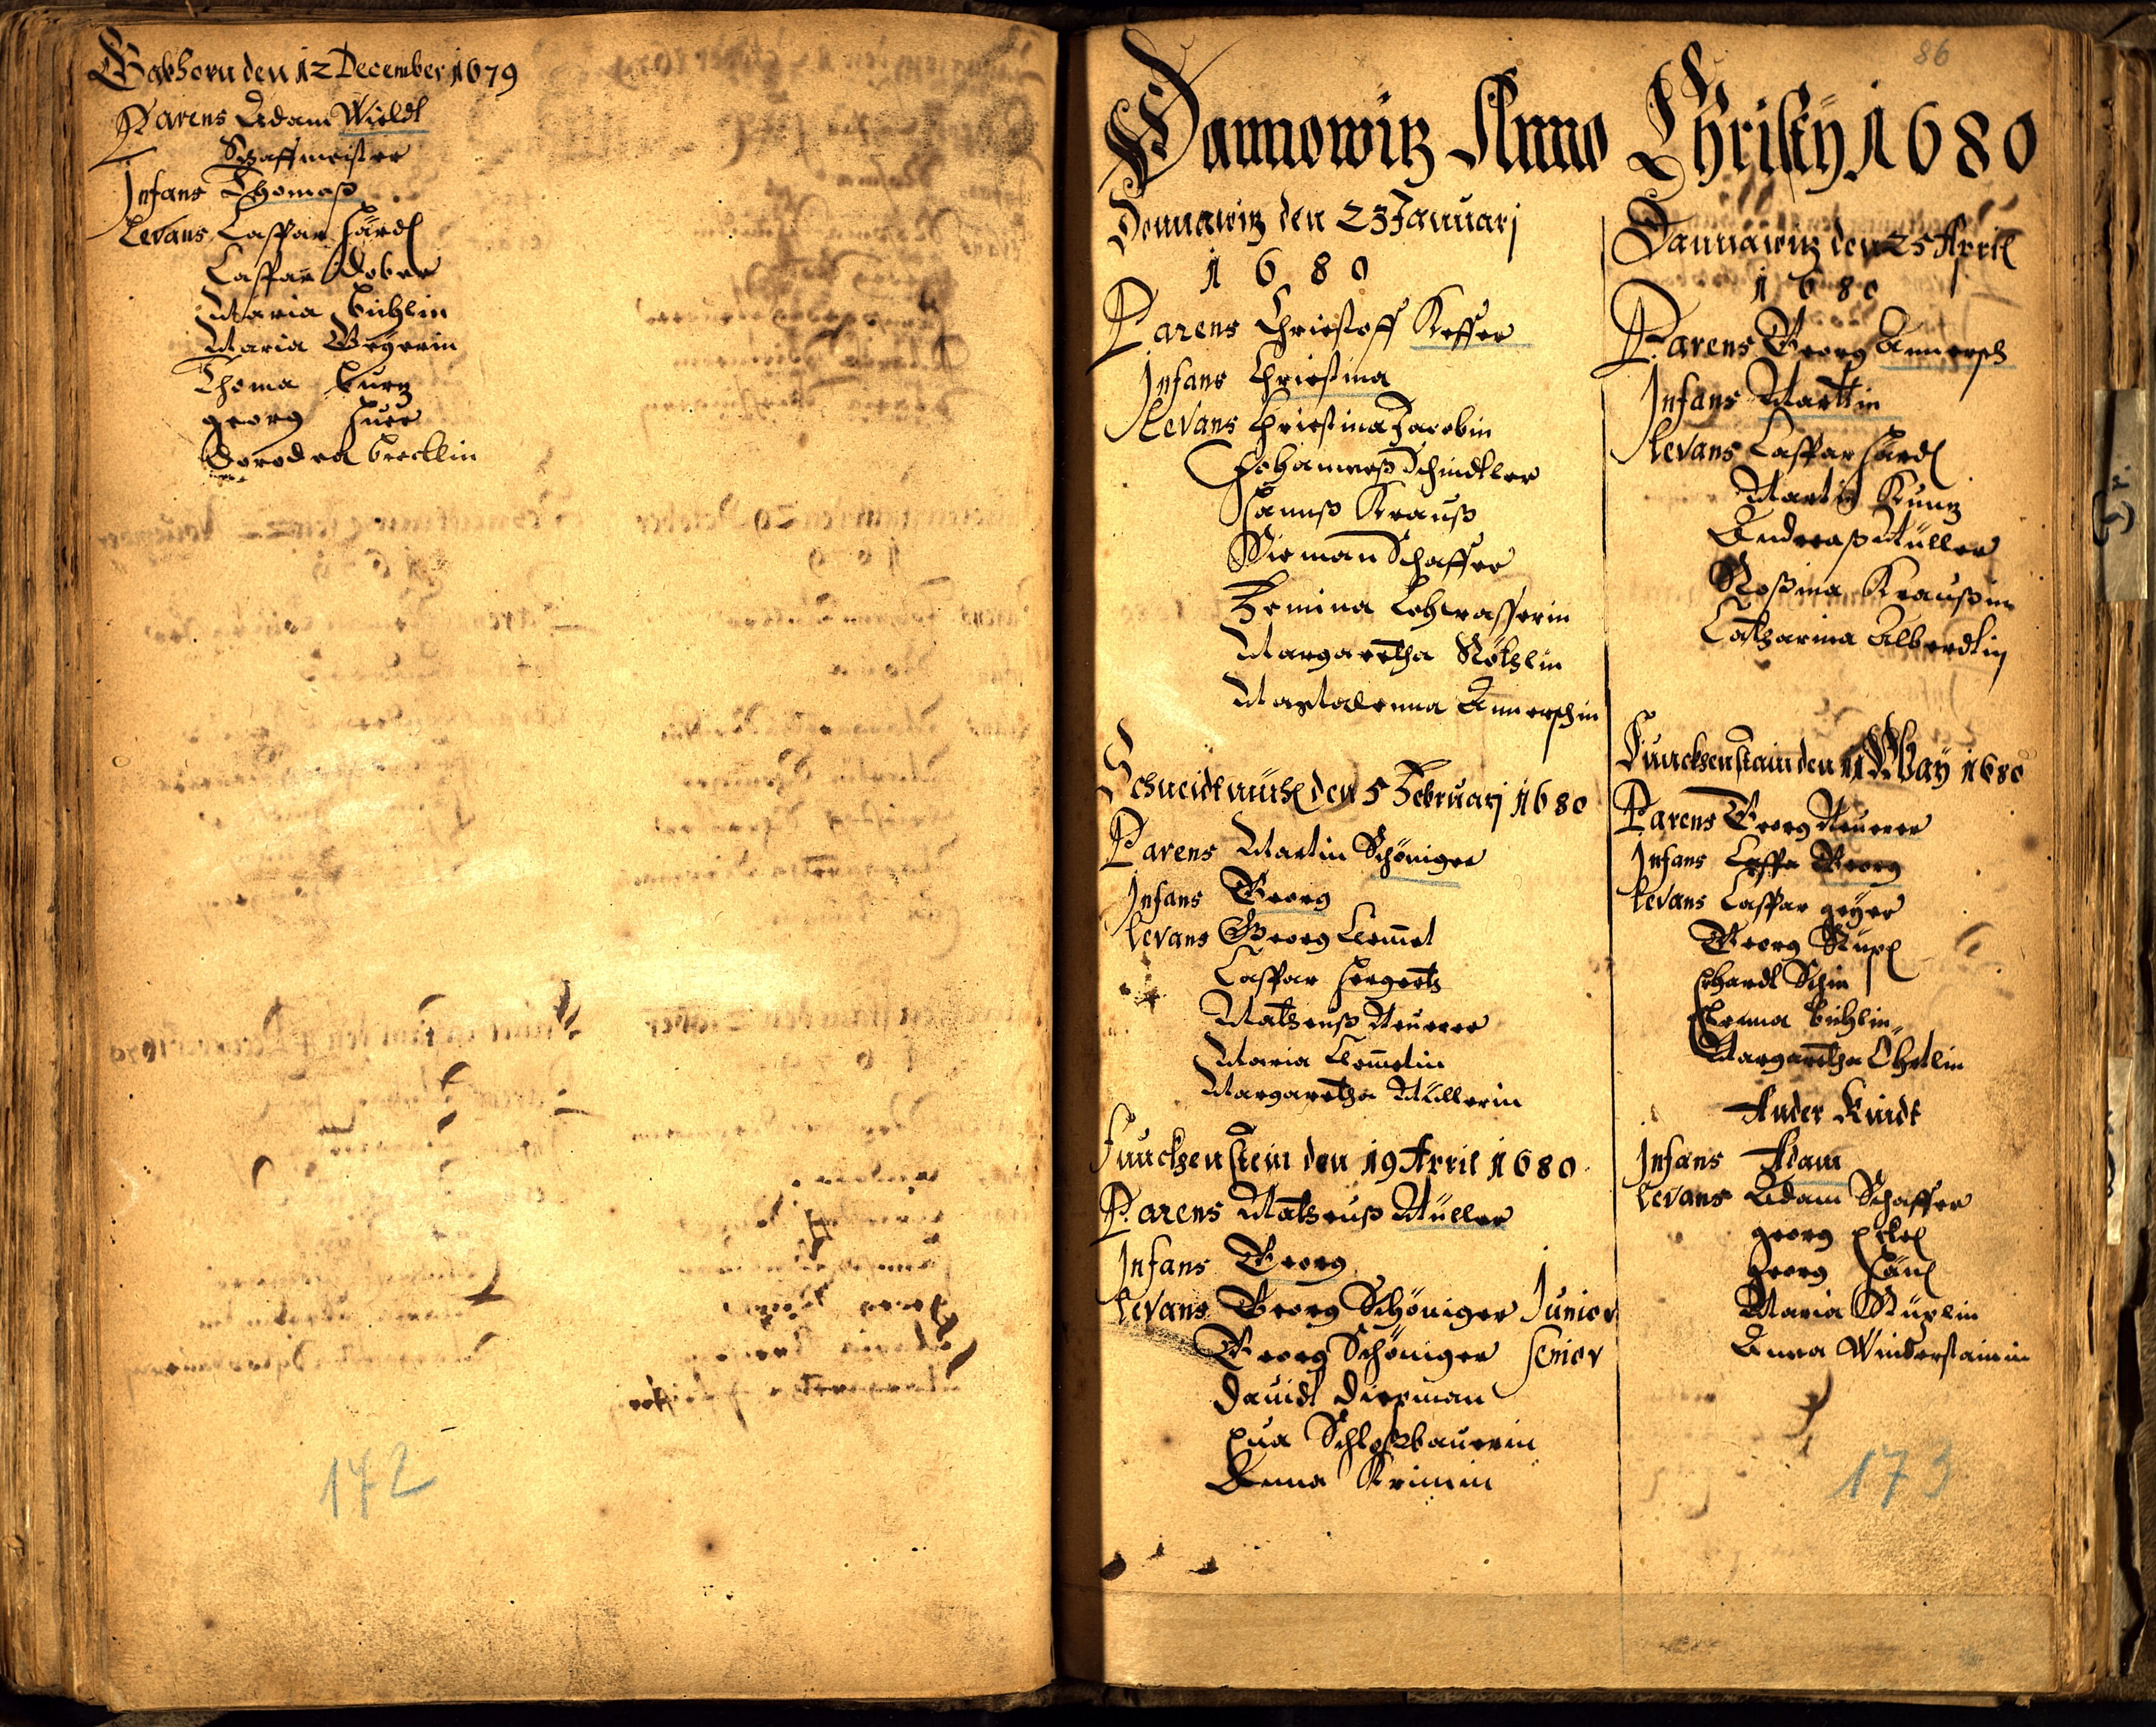 Gabhorn den 12 December 1679
Parens Adam Wieldt
Schaffmeister
Infans Thomaß
Levans Casspar Härdl
Casspar Dober
Maria Bühlin
Maria Geyerin
Thoma Kurtz
georg Huer
Dorodea Brecklin
142
86
Dannowitz Anno Christy 1680
Donnawitz den 23 Januarj
1680
Parens Christoff Keffer
Infans Christina
Levans Christina Jacobin
Johanneß Schindtler
Hannß Krauß
Simann Schaffer
Margaretha Röthlin
Magdalenna Annerschin
Schneidtmühl den 5 Februarj 1680
Parens Martin Schöniger
Infans Georg
Levans Georg Clemet
Casspar Hergertz
Matheuß Neuerer
Maria Clemetin
Margaretha Müllerin
Funckhenstein den 19 Appril 1680
Parens Matheuß Müller
Infans Georg
Levans Georg Schöniger Junior
Georg Schöniger senior
Davidt Diepman
Eua Schloßbauerin
Anna Krimin
Dannawitz den 25 Appril
1680
Parens Georg Annersch
Infans Marttin
Levans Casspar Härdl
Martin Kuntz
Andreaß Müller
Roßina Kraußin
Catharina Alberdtin
Funckhenstain den 11 May 1680
Parens Georg Neuerer
Infans Casspa Georg
Levans Casspar geyer
Georg Rupl
Erhardt Schin
Elenna Bühlin
Margaretha Ohetlin
Ander Kindt
Infans Adam
Levans Adam Schaffer
georg
georg Häül
Maria Rüplin
Anna Winderstainin
173